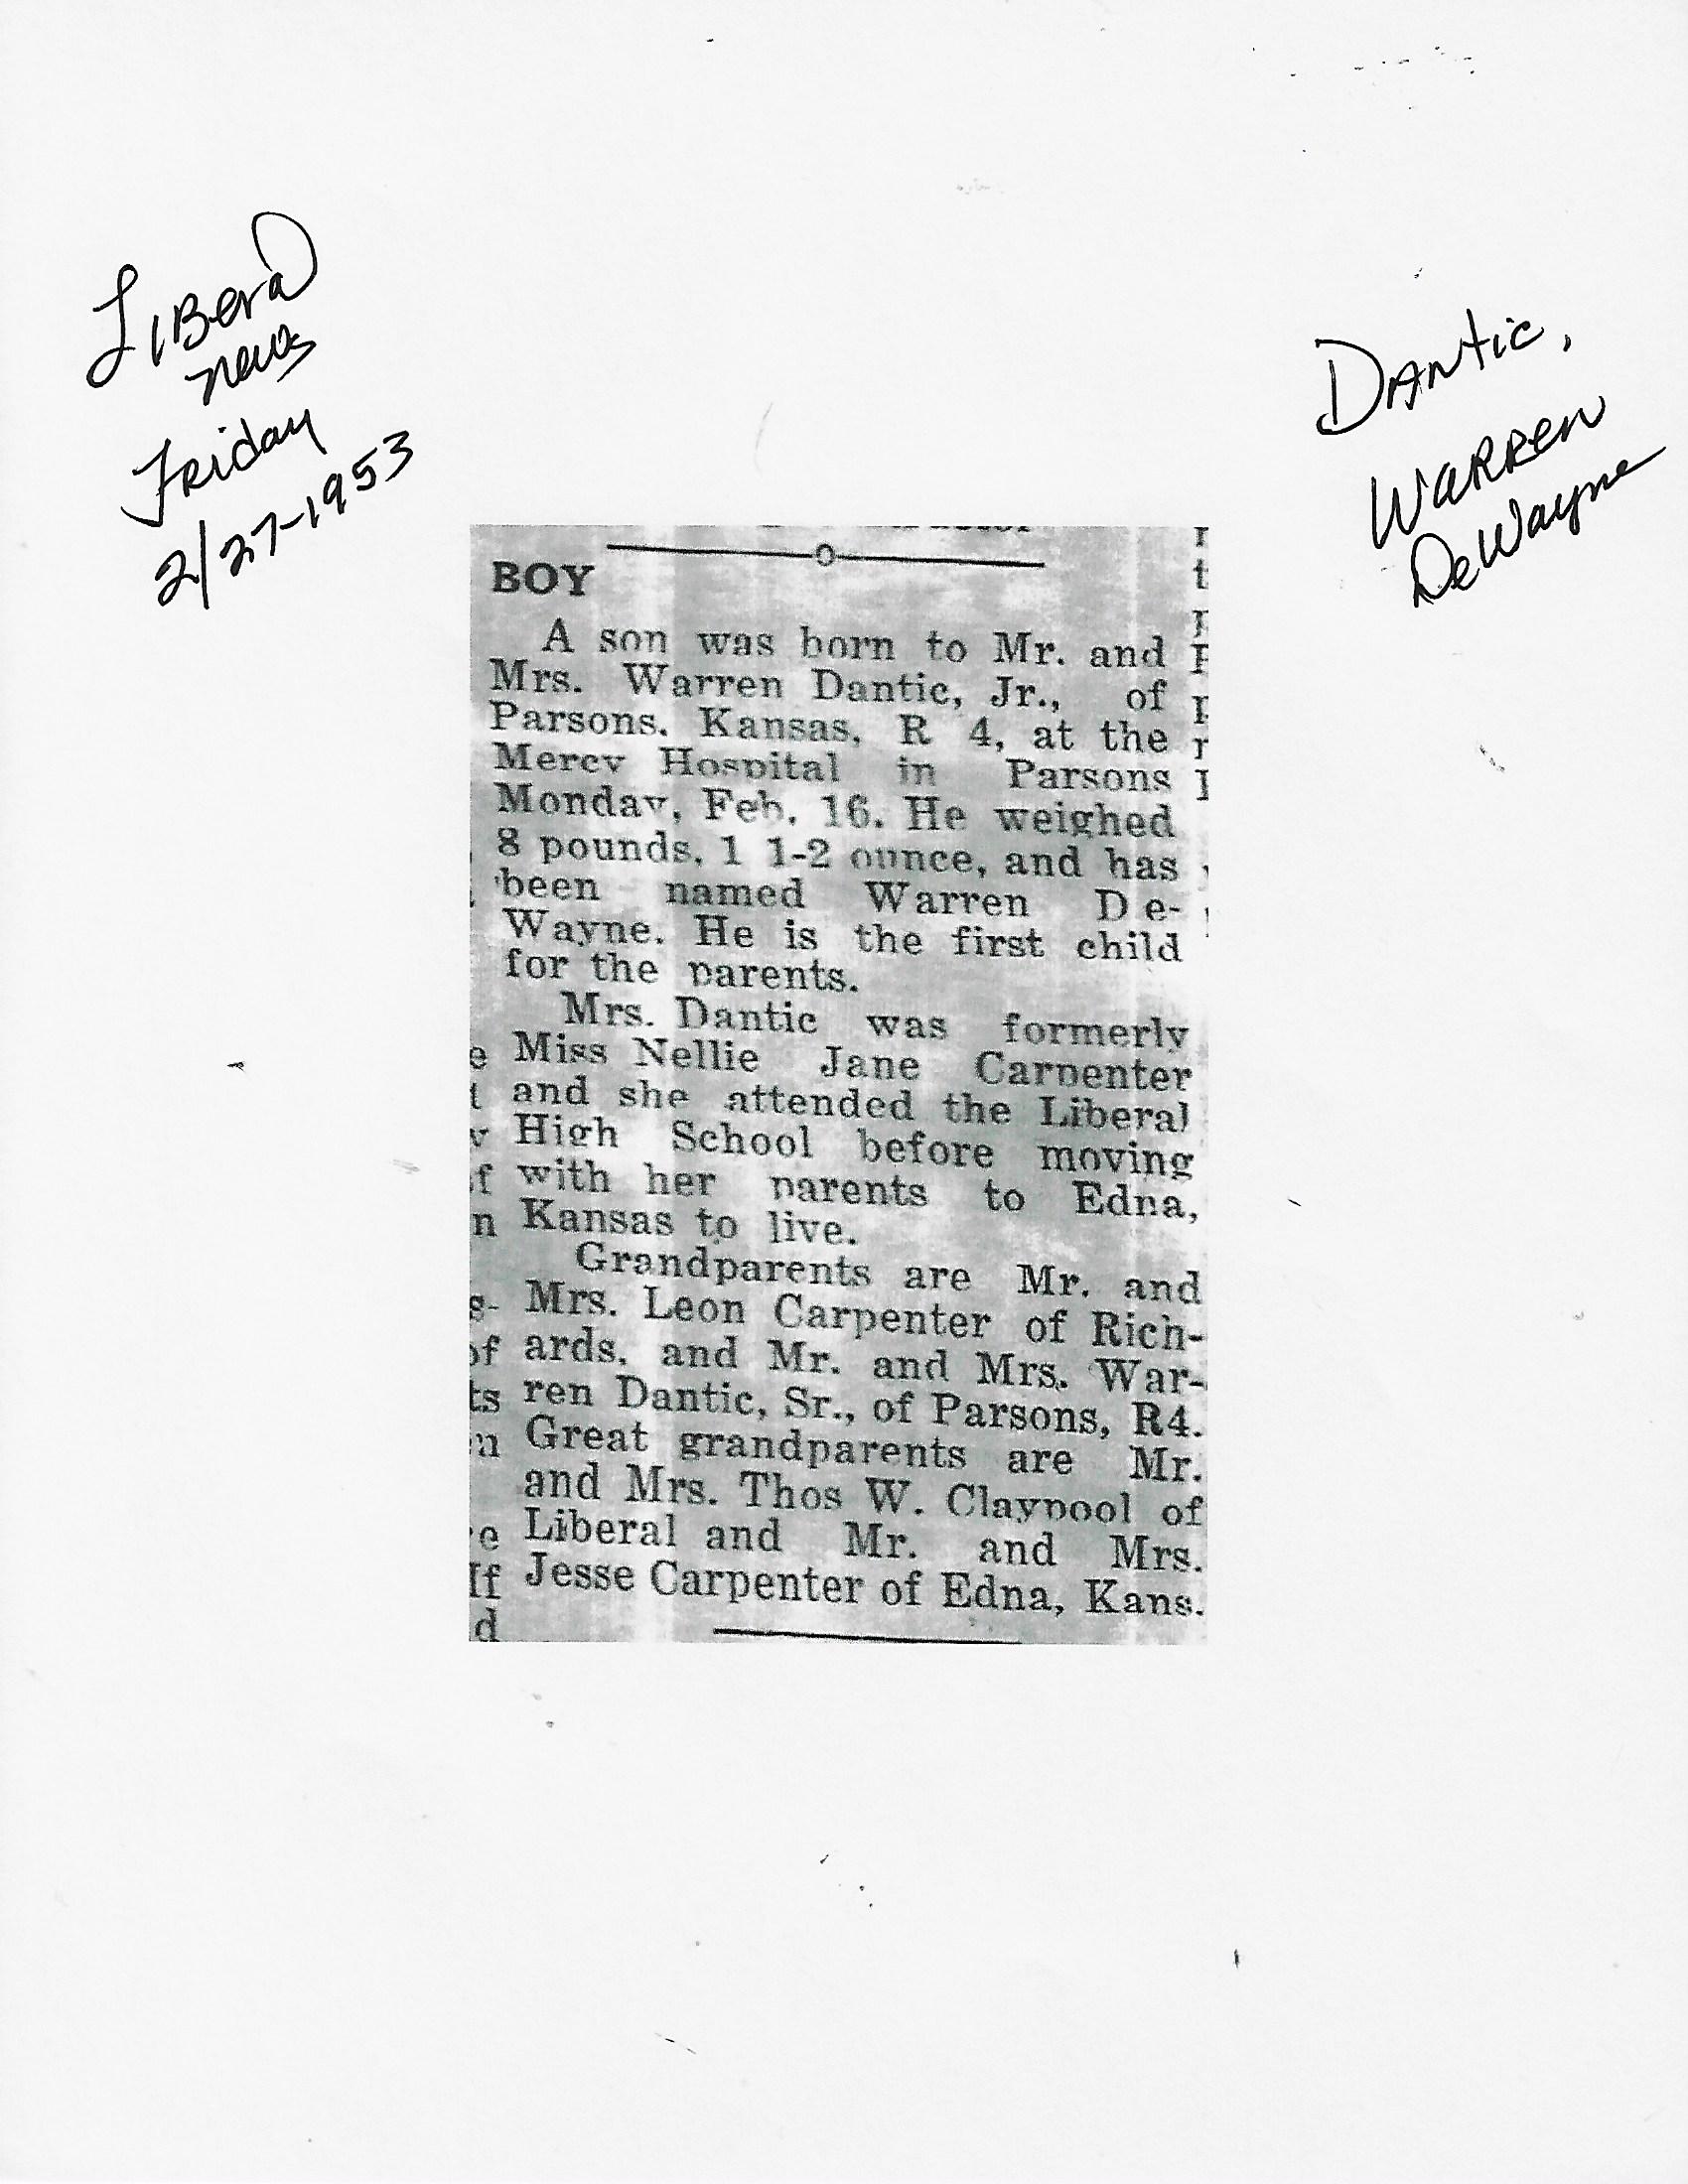 Liberal
news
Friday
2/27-1953
Dantic,
Warren
DeWayne
BOY
A son was born to Mr. and
Mrs. Warren Dantic, Jr., of
Parsons, Kansas, R 4, at the
Mercy Hospital in Parsons
Monday, Feb. 16. He weighed
8 pounds, 1 1-2 ounce, and has
been named Warren De-
Wayne. He is the first child
for the parents.
Mrs. Dantic was formerly
Miss Nellie Jane Carpenter
and she attended the Liberal
High School before moving
with her parents to Edna,
Kansas to live.
Grandparents are Mr. and
Mrs. Leon Carpenter of Rich-
ards, and Mr. and Mrs. War-
ren Dantic, Sr., of Parsons, R4.
Great grandparents are Mr.
and Mrs. Thos W. Claypool of
Liberal and Mr. and Mrs.
Jesse Carpenter of Edna, Kans.